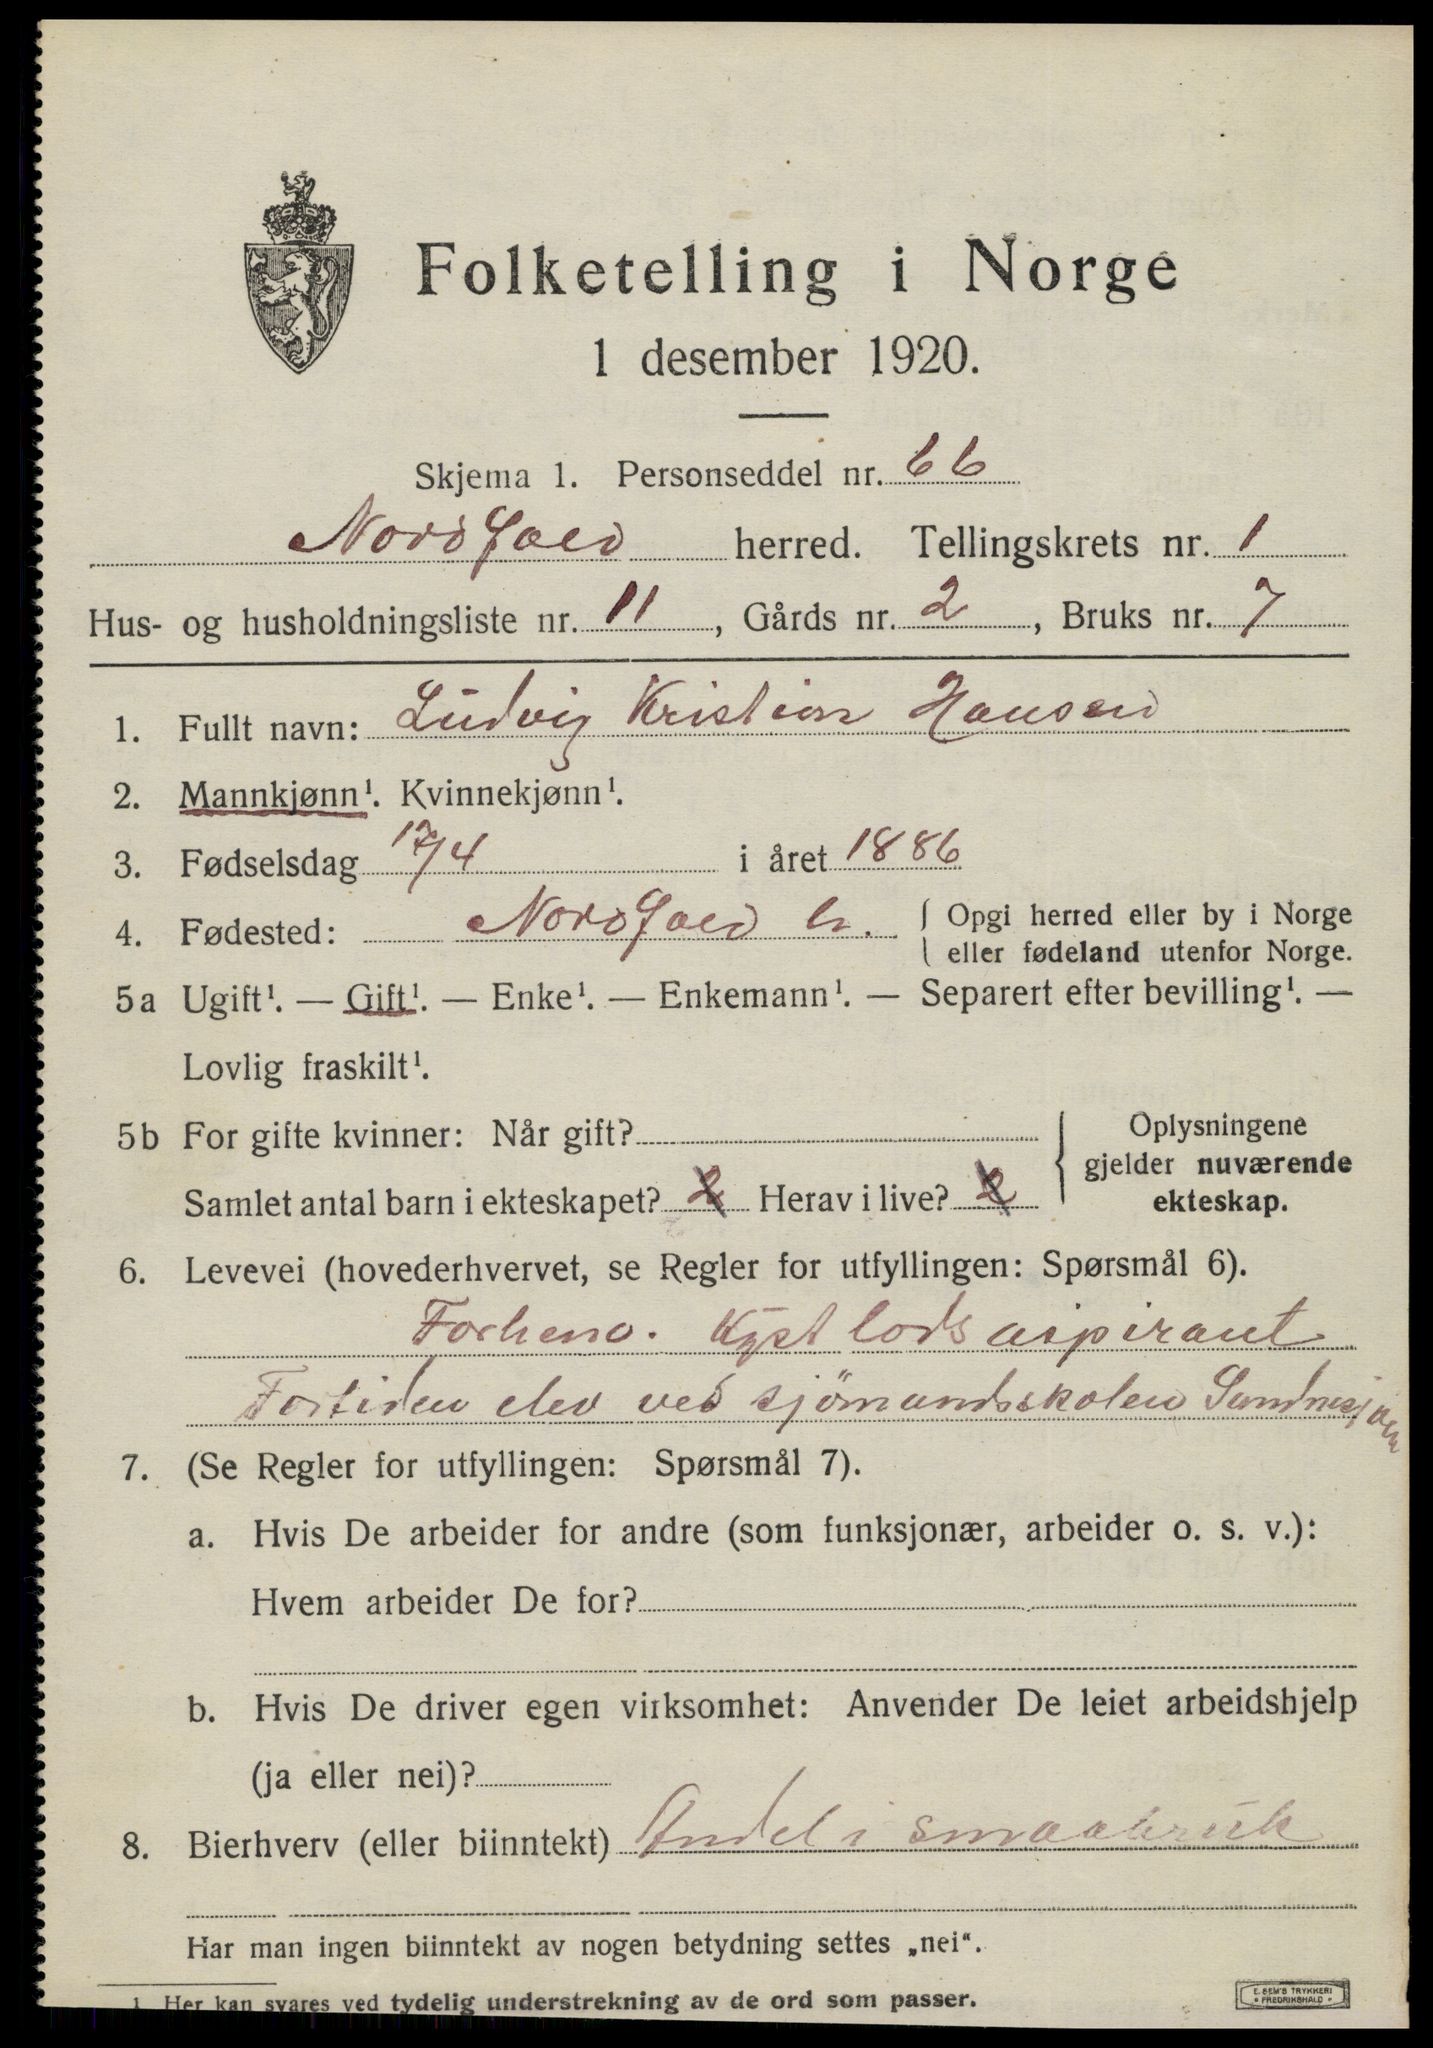 Folketelling i Norge
1 desember 1920.
Skjema 1. Personseddel nr. 66
Nordfold herred. Tellingskrets nr. 1
Hus- og husholdningsliste nr. 11, Gårds nr. 2, Bruks nr. 7
1. Fullt navn: Ludvig Kristian Hansen
2. Mannkjønn¹. Kvinnekjønn¹.
3. Fødselsdag 17/4 i året 1886
4. Fødested: Nordfold h. { Opgi herred eller by i Norge
eller fødeland utenfor Norge.
5a Ugift¹. — Gift¹. — Enke¹. — Enkemann¹. — Separert efter bevilling¹. —
Lovlig fraskilt¹.
5b For gifte kvinner: Når gift?
Samlet antal barn i ekteskapet? 2 Herav i live? 2
Oplysningene
gjelder nuværende
ekteskap.
6. Levevei (hovederhvervet, se Regler for utfyllingen: Spørsmål 6).
Forhenv. Kyst lods aspirant
Fortiden elev ved sjömandsskolen Sandnessjöen
7. (Se Regler for utfyllingen: Spørsmål 7).
a. Hvis De arbeider for andre (som funksjonær, arbeider o. s. v.):
Hvem arbeider De for?
b. Hvis De driver egen virksomhet: Anvender De leiet arbeidshjelp
(ja eller nei)?
8. Bierhverv (eller biinntekt) Andel i smaabruk
Har man ingen biinntekt av nogen betydning settes „nei“.
1. Her kan svares ved tydelig understrekning av de ord som passer.
E. SEM'S TRYKKERI
• FREDRIKSHALD •